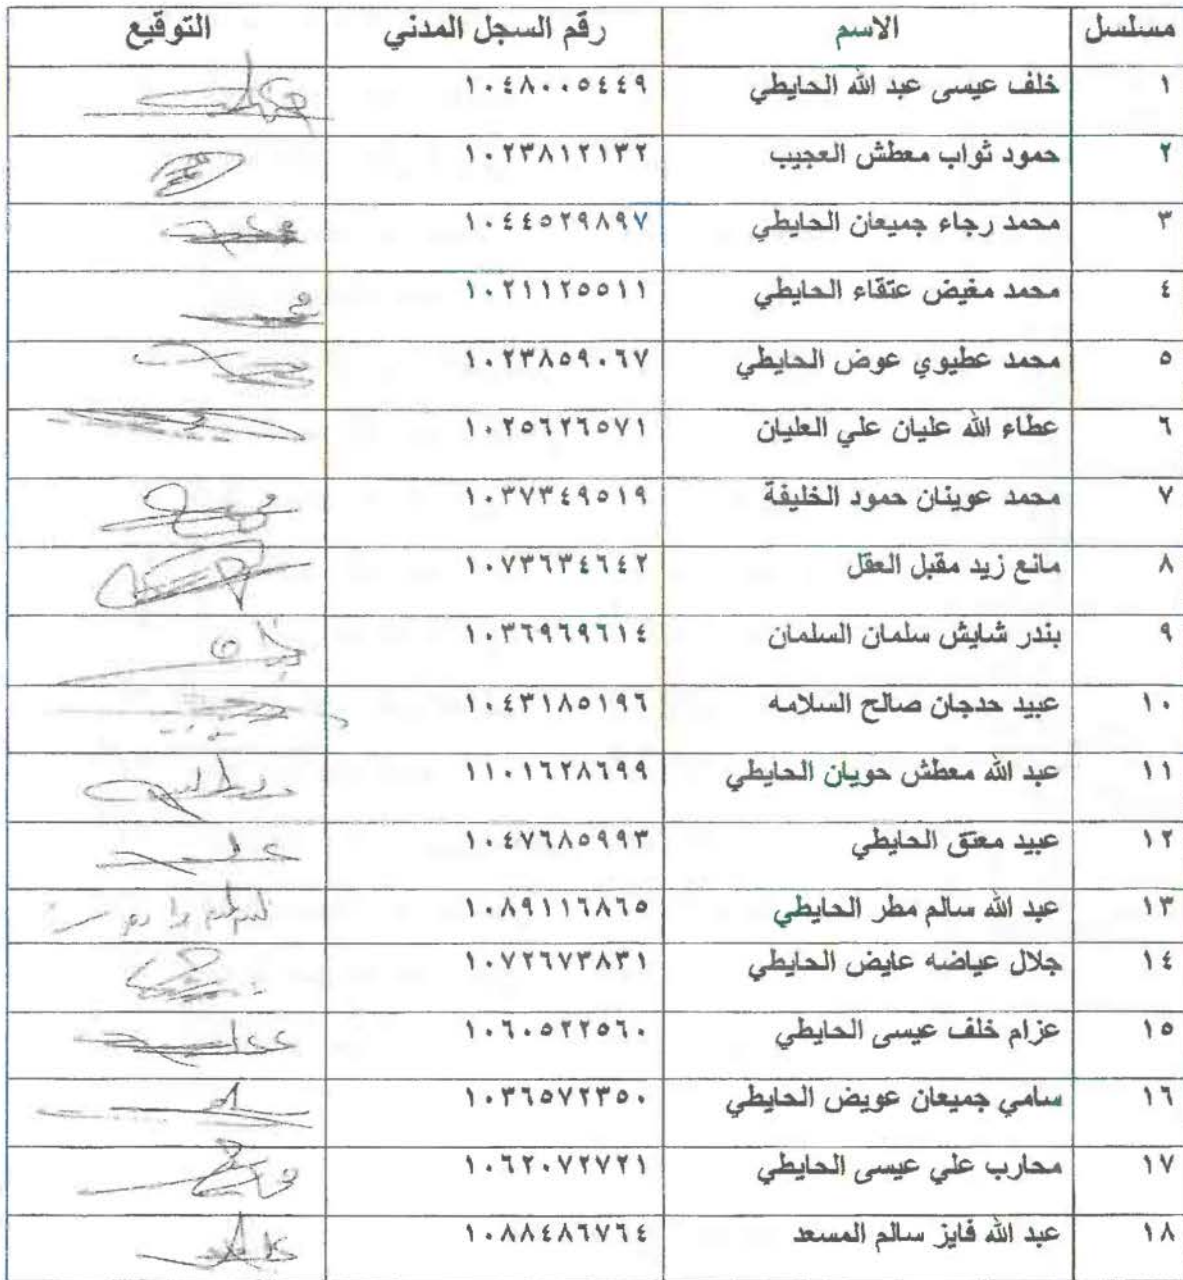 مسلسل الاسم رقم السجل المدني التوقيع
١ خلف عيسى عبد الله الحايطي ١٠٤٨٠٠٥٤٤٩
٢ حمود ثواب معطش العجيب ١٠٢٣٨١٢١٣٢
٣ محمد رجاء جميعان الحايطي ١٠٤٤٥٢٩٨٩٧
٤ محمد مغيض عتقاء الحايطي ١٠٢١١٢٥٥١١
٥ محمد عطيوي عوض الحايطي ١٠٢٣٨٥٩٠٦٧
٦ عطاء الله عليان علي العليان ١٠٢٥٦٢٦٥٧١
٧ محمد عوينان حمود الخليفة ١٠٣٧٣٤٩٥١٩
٨ مانع زيد مقبل العقل ١٠٧٣٦٣٤٦٤٢
٩ بندر شايش سلمان السلمان ١٠٣٦٩٦٩٦١٤
١٠ عبيد حدجان صالح السلامه ١٠٤٣١٨٥١٩٦
١١ عبد الله معطش حويان الحايطي ١١٠١٦٢٨٦٩٩
١٢ عبيد معتق الحايطي ١٠٤٧٦٨٥٩٩٣
١٣ عبد الله سالم مطر الحايطي ١٠٨٩١١٦٨٦٥
١٤ جلال عياضه عايض الحايطي ١٠٧٢٦٧٣٨٣١
١٥ عزام خلف عيسى الحايطي ١٠٦٠٥٢٢٥٦٠
١٦ سامي جميعان عويض الحايطي ١٠٣٦٥٧٢٣٥٠
١٧ محارب علي عيسى الحايطي ١٠٦٢٠٧٢٧٢١
١٨ عبد الله فايز سالم المسعد ١٠٨٨٤٨٦٧٦٤